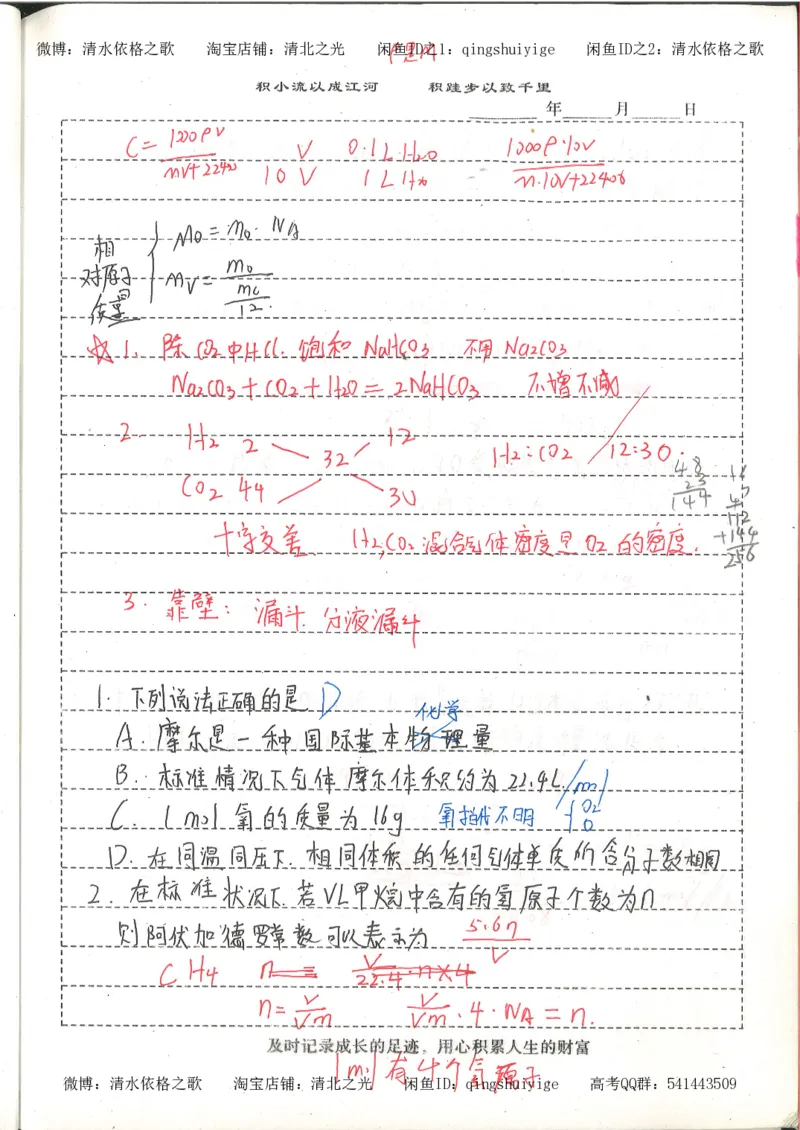 微博：清水依格之歌 淘宝店铺：清北之光 闲鱼ID之1：qingshuiyige 闲鱼ID之2：清水依格之歌
积小流以成江河 积跬步以致千里
年 月 日
C= 1000ρV / mV+22400 V 0.1L H2O 1000ρ·10V / m·10V+22400
10V 1L H2O
相对原子质量 { M0 = m0·NA
Mr = m0 / mc/12
☆ 1. 除CO2中HCl. 饱和NaHCO3 不用Na2CO3
Na2CO3+CO2+H2O=2NaHCO3 不增不减
2. H2 2 32 12 H2:CO2 12:30.
CO2 44 30
48 23 144
112 +144 256
十字交差 H2,CO2混合气体密度是O2的密度.
3. 靠壁：漏斗. 分液漏斗
1. 下列说法正确的是 D
A. 摩尔是一种国际基本物理量 化学
B. 标准情况下气体摩尔体积约为22.4L /mol
C. 1mol氧的质量为16g 氧指代不明 { O2 O
D. 在同温同压下. 相同体积的任何气体单质所含分子数相同
2. 在标准状况下. 若VL甲烷中含有的氢原子个数为n
则阿伏加德罗常数可以表示为 5.6n / V
CH4 n= V / 22.4 ·n×4
n= V / Vm V / Vm ·4·NA=n.
及时记录成长的足迹，用心积累人生的财富
1mol有4个氢原子
微博：清水依格之歌 淘宝店铺：清北之光 闲鱼ID：qingshuiyige 高考QQ群：541443509